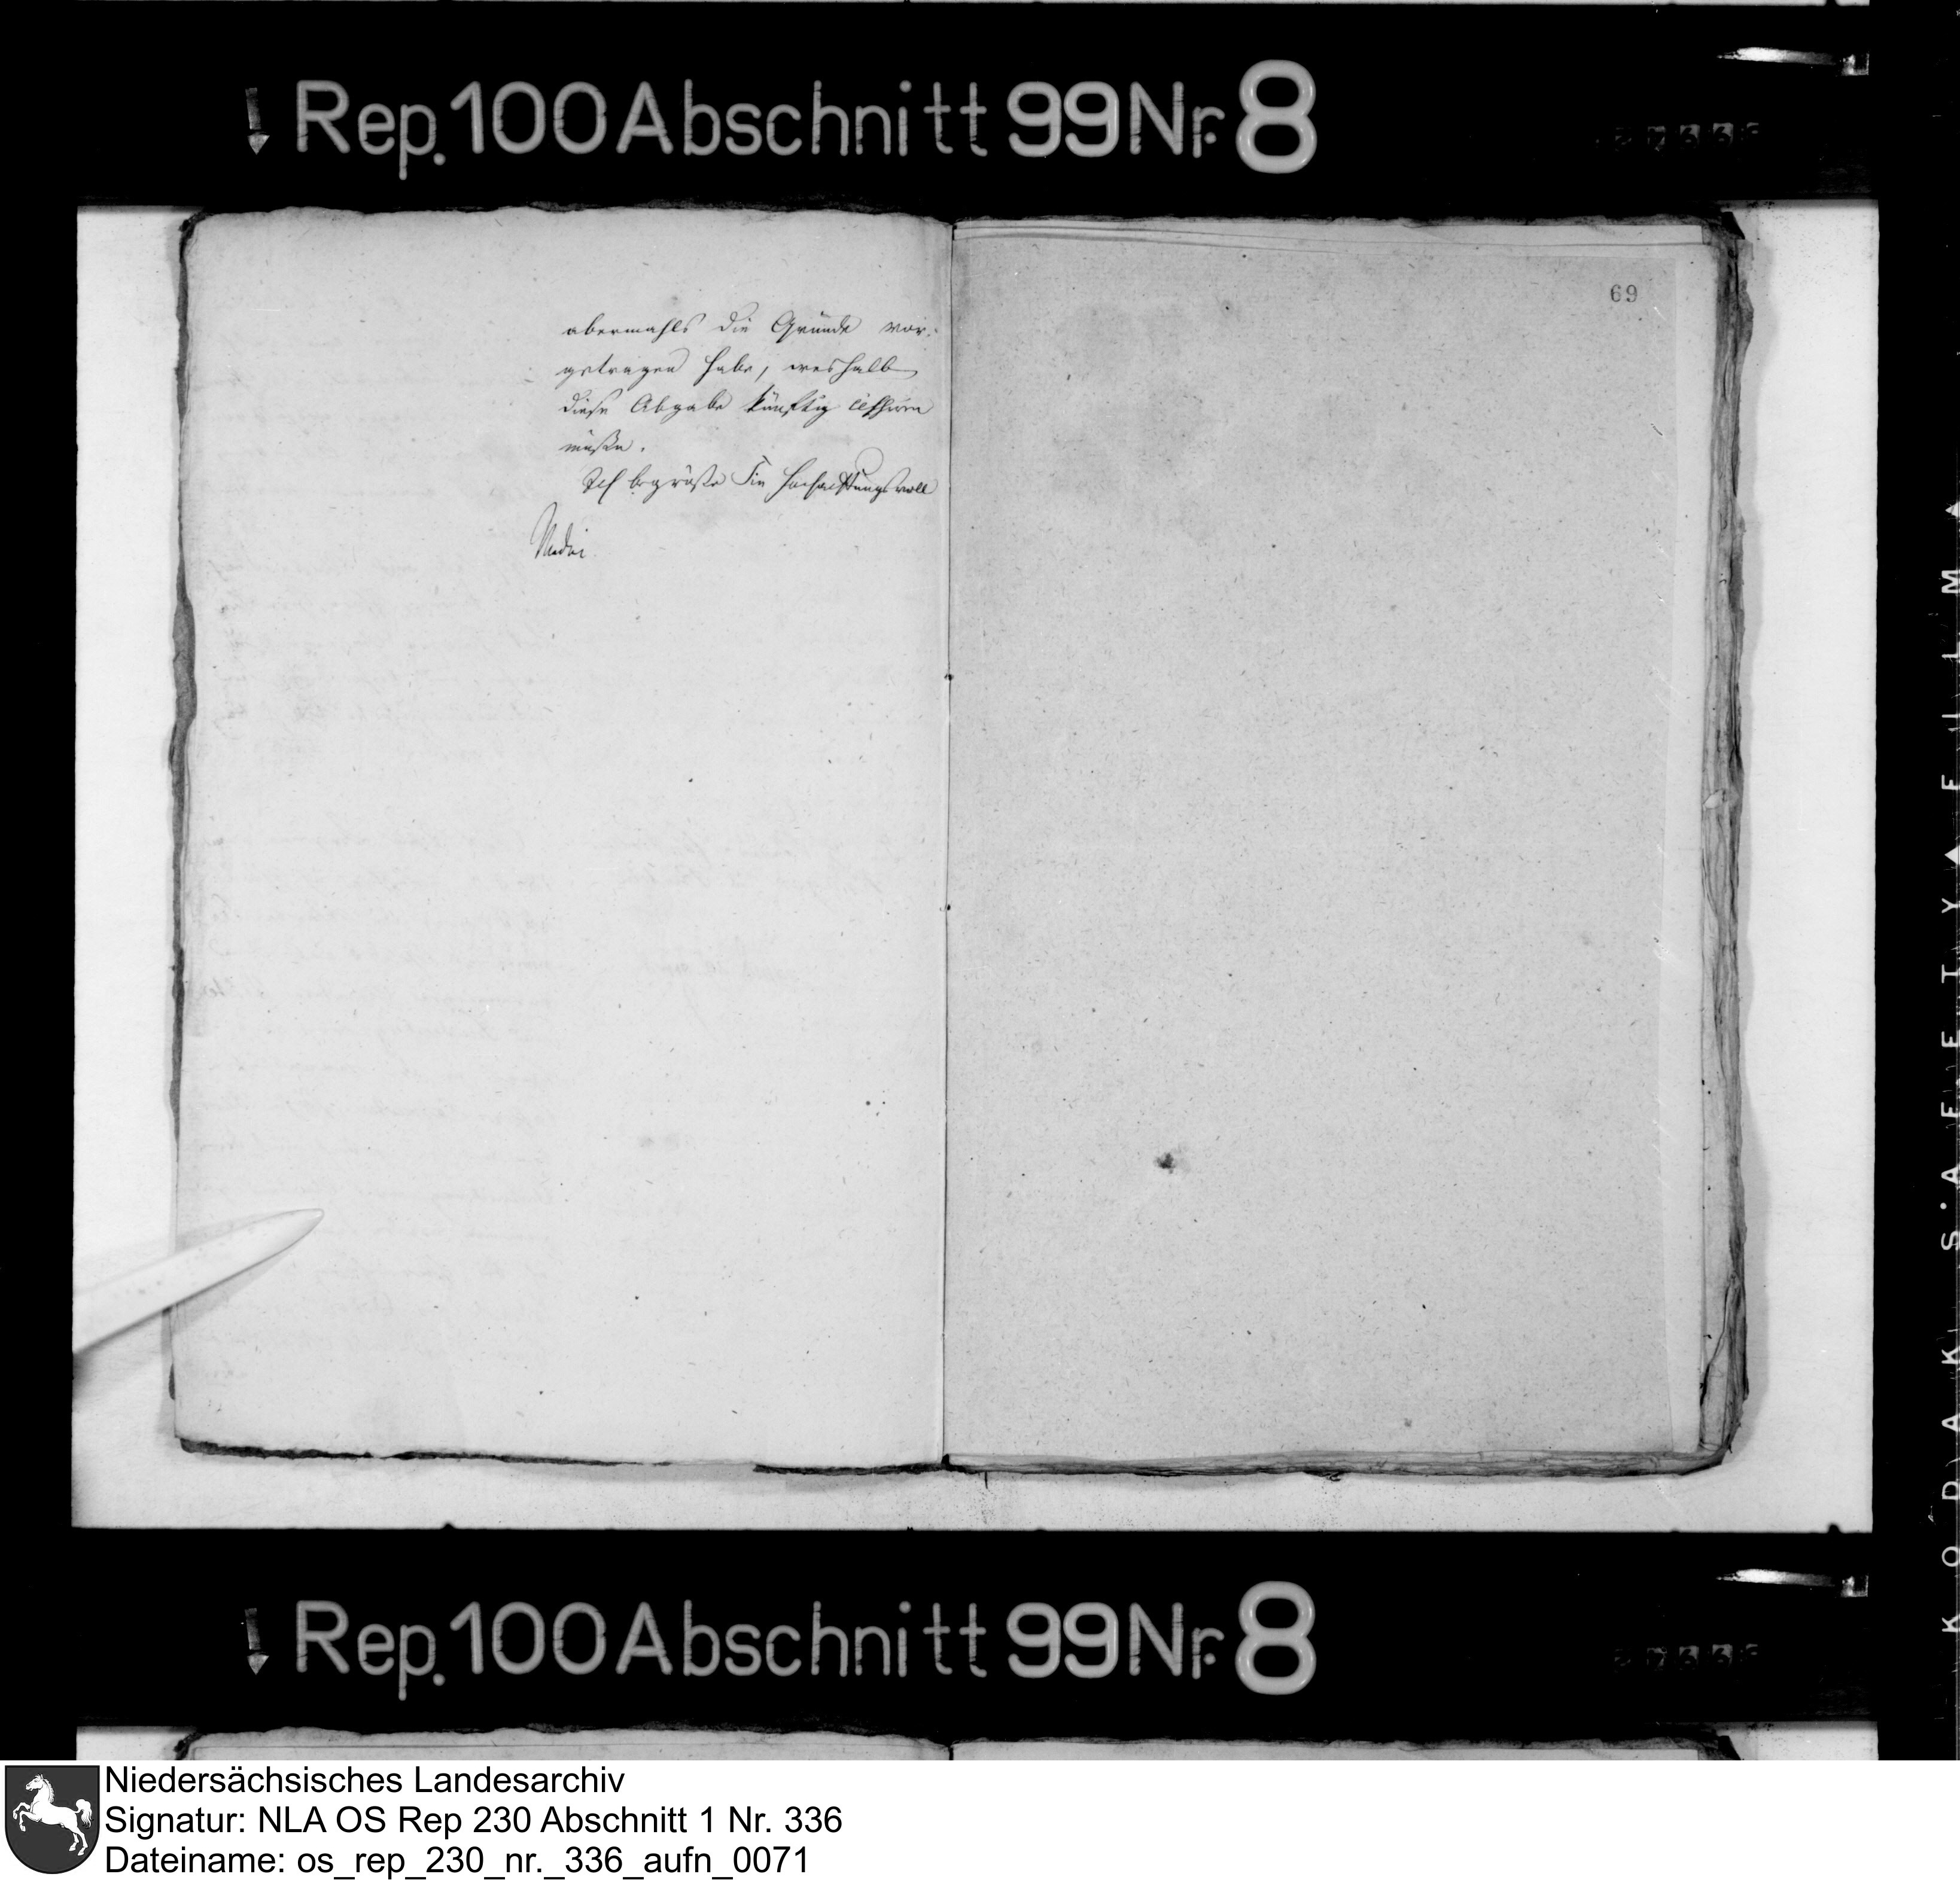 Rep. 100 Abschnitt 99 Nr. 8
abermahls die Gründe vor-
getragen habe, weshalb
diese Abgabe künftig cessiren
müße.
Ich begrüße Sie hochachtungsvoll
69
Rep. 100 Abschnitt 99 Nr. 8
KODAK SAFETY FILM
Niedersächsisches Landesarchiv
Signatur: NLA OS Rep 230 Abschnitt 1 Nr. 336
Dateiname: os_rep_230_nr._336_aufn_0071